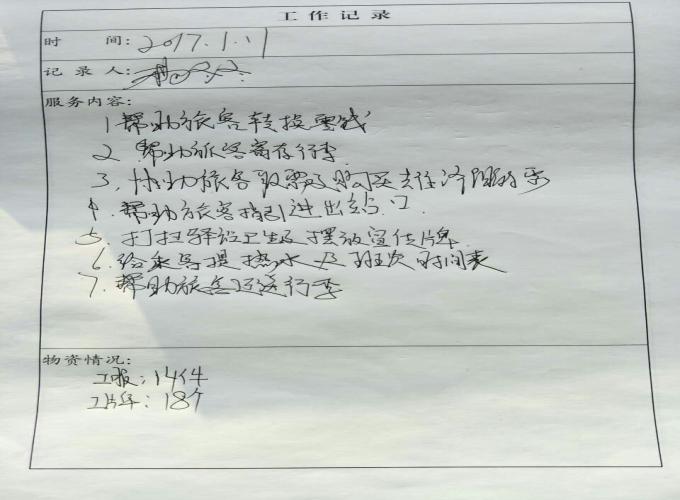 工作记录
时 间：2017.1.11
记 录 人：
服务内容：
1 帮助旅客转换零钱
2 帮助旅客寄存行李
3、协助旅客取票及购买去往济阳的票
4、帮助旅客指引进出站口
5、打扫驿站卫生及摆放宣传牌
6、给乘客提热水及班次时间表
7、帮助旅客运送行李
物资情况：
工服：14件
工牌：18个